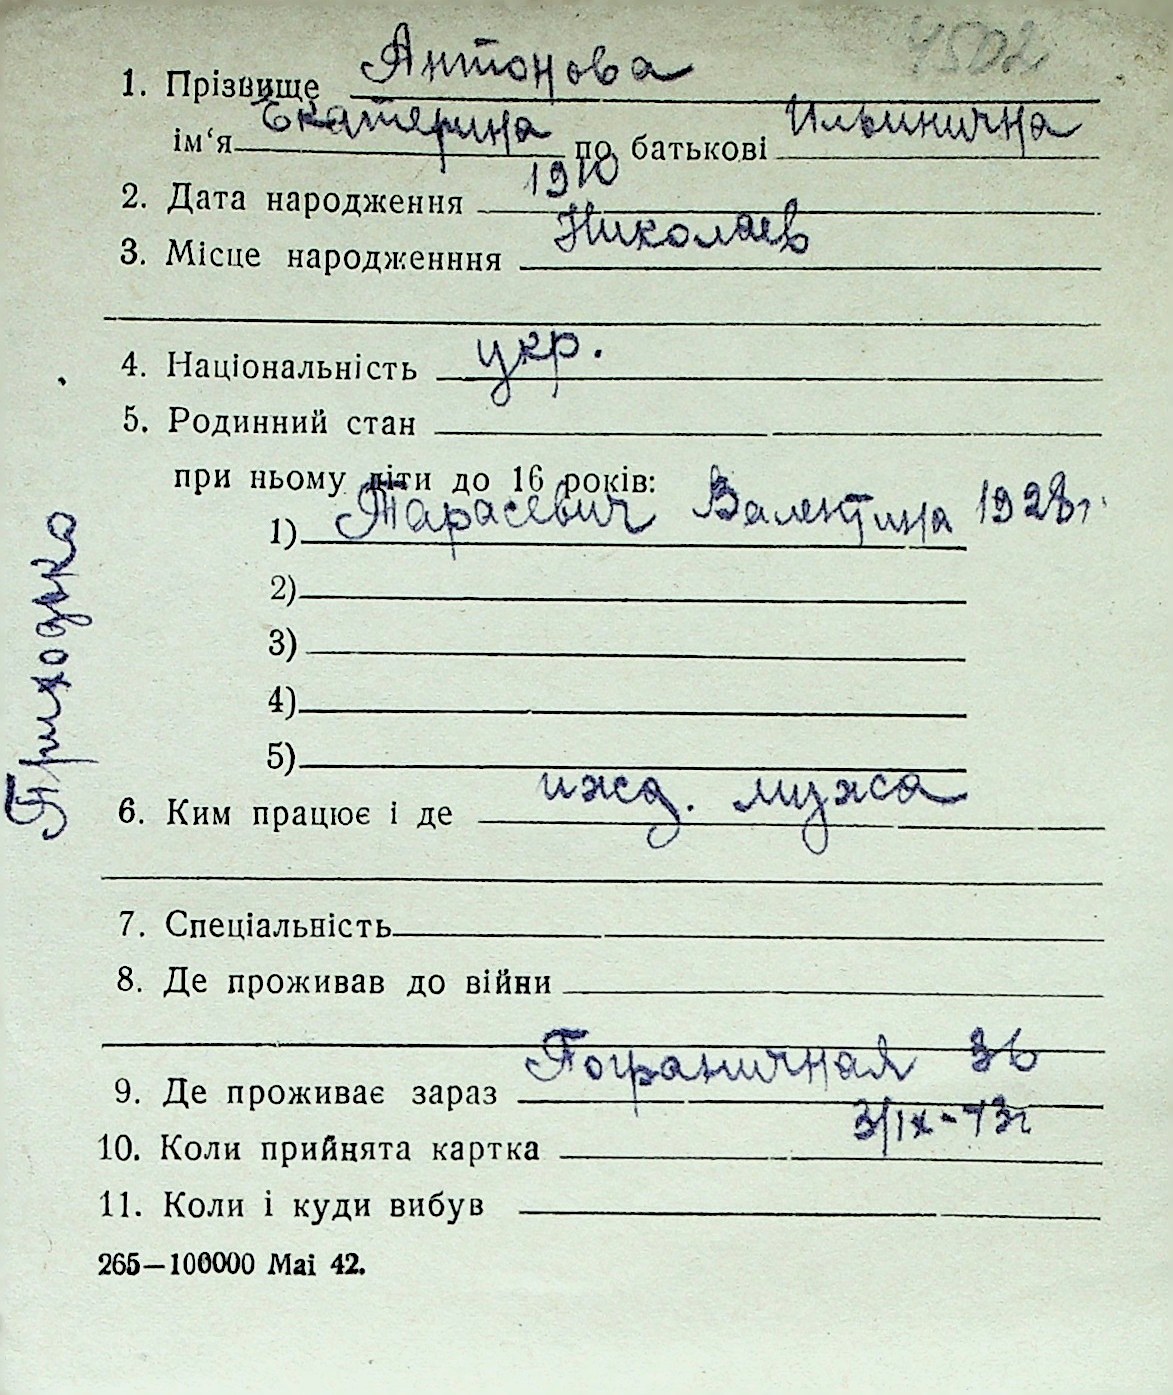 4502
1. Прізвище Антонова
ім‘я Екатерина по батькові Ильинична
2. Дата народження 1910
3. Місце народженння Николаев
4. Національність укр.
5. Родинний стан
при ньому діти до 16 років:
1) Тарасевич Валентина 1928г.
2)
3)
4)
5)
6. Ким працює і де ижд. мужа
7. Спеціальність
8. Де проживав до війни
9. Де проживає зараз Пограничная 36
10. Коли прийнята картка 3/IX-43г
11. Коли і куди вибув
265—100000 Mai 42.
Приходько